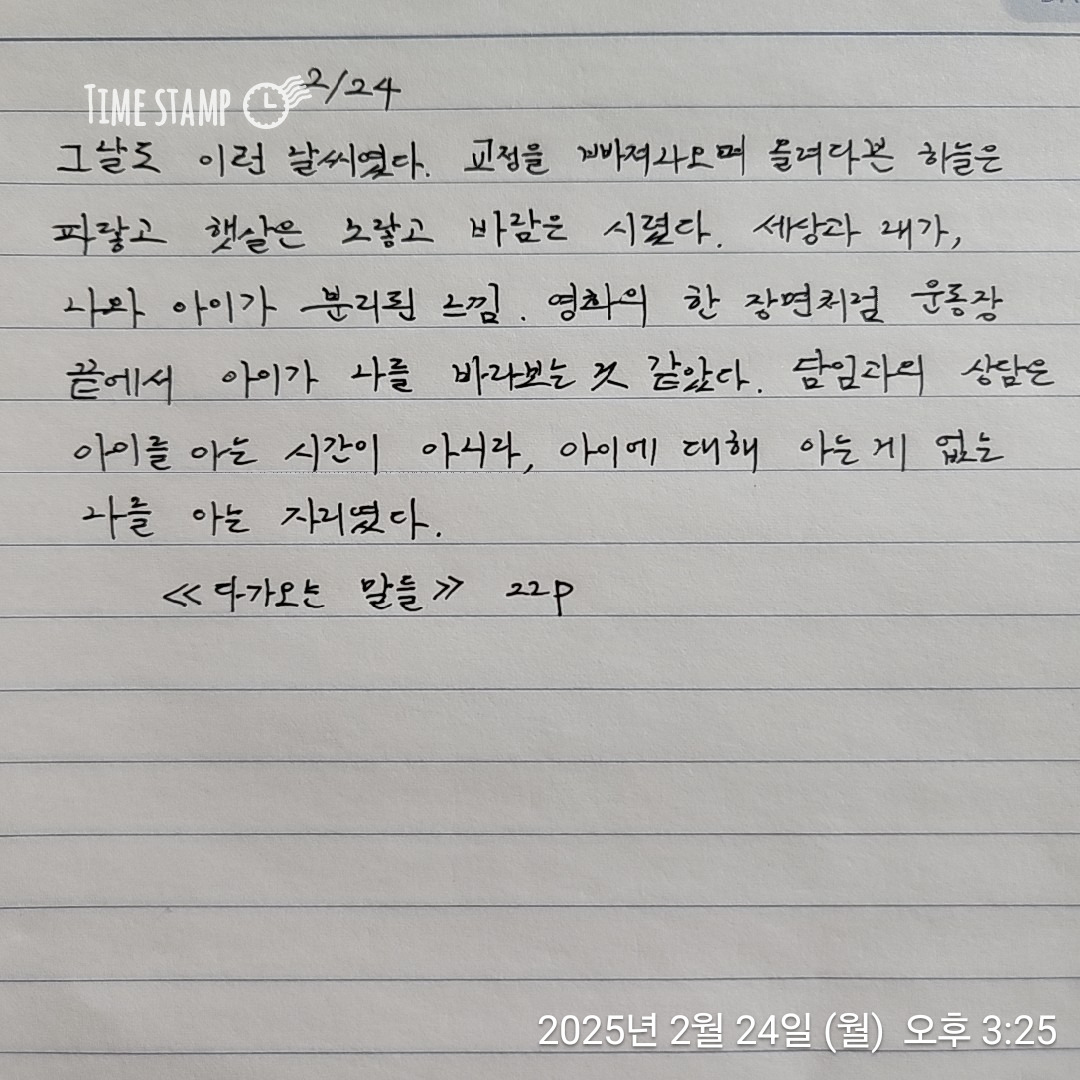 TIME STAMP
2/24
그날도 이런 날씨였다. 교정을 빠져나오며 올려다본 하늘은
파랗고 햇살은 노랗고 바람은 시렸다. 세상과 내가,
나와 아이가 분리된 느낌. 영화의 한 장면처럼 운동장
끝에서 아이가 나를 바라보는 것 같았다. 담임과의 상담은
아이를 아는 시간이 아니라, 아이에 대해 아는 게 없는
나를 아는 자리였다.
≪다가오는 말들≫ 22p
2025년 2월 24일 (월) 오후 3:25